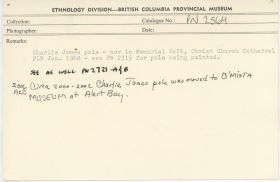 ETHNOLOGY DIVISION—BRITISH COLUMBIA PROVINCIAL MUSEUM
Collection: Catalogue No.: PN 2564
Photographer: Date:
Remarks:
Charlie James pole - now in Memorial Hall, Christ Church Cathedral
PLM Jan. 1968 - see PN 2315 for pole being painted.
SEE AS WELL PN 2721-A+B
2006 Circa 2000-2002 Charlie James pole was moved to U'MISTA
MUSEUM at Alert Bay.